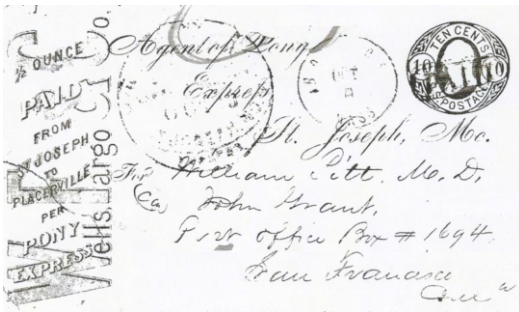 ½ OUNCE
PAID
FROM
ST JOSEPH
TO
PLACERVILLE
PER
PONY
EXPRESS
Wells, Fargo & Co.
Agent of Pony
Express
St. Joseph, Mo.
TEN CENTS
10 PAID 10
U.S. POSTAGE
For William Pitt. M.D.
(Ca) John Grant,
Post Office Box # 1694
San Francisco